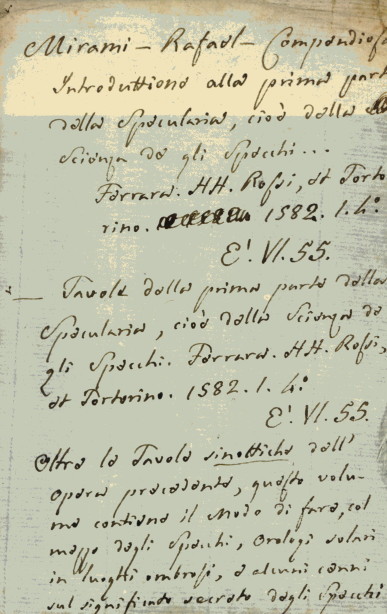 Mirami - Rafael - Compendiosa
Introduttione alla prima part
della Specularia, cioè della
Scienza de gli Specchi...
Ferrara. HH. Rossi, et Torto
rino. 1582. 1. 4º
E'. VI. 55.
— Tavole della prima parte della
Specularia, cioè della Scienza de
gli Specchi. Ferrara. HH. Rossi,
et Tortorino. 1582. 1. 4º
E'. VI. 55.
Oltre le Tavole sinottiche dell'
opera precedente, questo volu-
me contiene il modo di fare, col
mezzo degli Specchi, Orologi solari
in luoghi ombrosi, e alcuni cenni
sul significato secreto degli Specchi